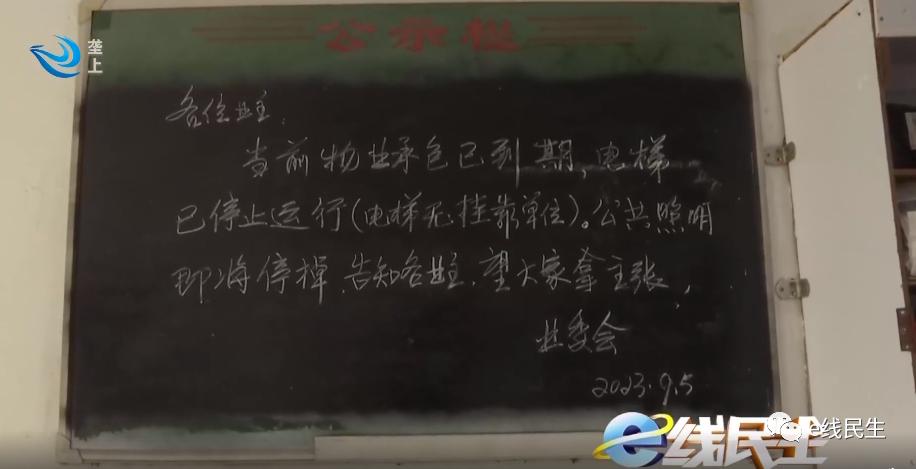 垄上
公示栏
各位业主:
当前物业承包已到期,电梯
已停止运行(电梯无挂靠单位)。公共照明
即将停掉、告知各业主、望大家拿主张,
业委会
2023.9.5
e线民生
e线民生